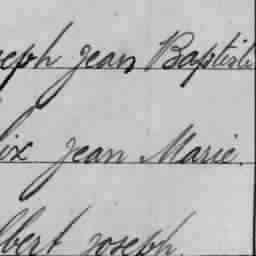 seph jean Baptiste
lix jean Marie.
lbert joseph